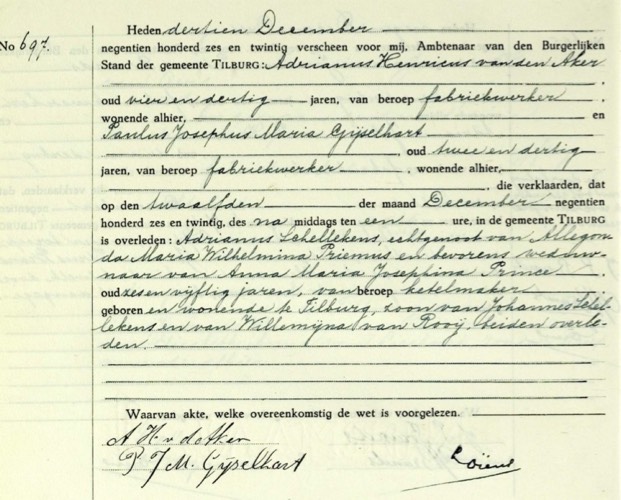 Heden dertien December
No 697.
negentien honderd zes en twintig verscheen voor mij, Ambtenaar van den Burgerlijken
Stand der gemeente TILBURG: Adrianus Henricus van den Aker
oud vier en dertig jaren, van beroep fabriekwerker,
wonende alhier, en
Paulus Josephus Maria Gijselhart
, oud twee en dertig
jaren, van beroep fabriekwerker, wonende alhier,
, die verklaarden, dat
op den twaalfden der maand December negentien
honderd zes en twintig, des na middags ten een ure, in de gemeente TILBURG
is overleden: Adrianus Schellekens, echtgenoot van Allegon-
da Maria Wilhelmina Priemus en bevorens weduw-
naar van Anna Maria Josephina Prince,
oud zes en vijftig jaren, van beroep ketelmaker,
geboren en wonende te Tilburg, zoon van Johannes Schel-
lekens en van Willemijna van Rooij, beiden overle-
den.
Waarvan akte, welke overeenkomstig de wet is voorgelezen.
A H v d Aker
P J M. Gijselhart